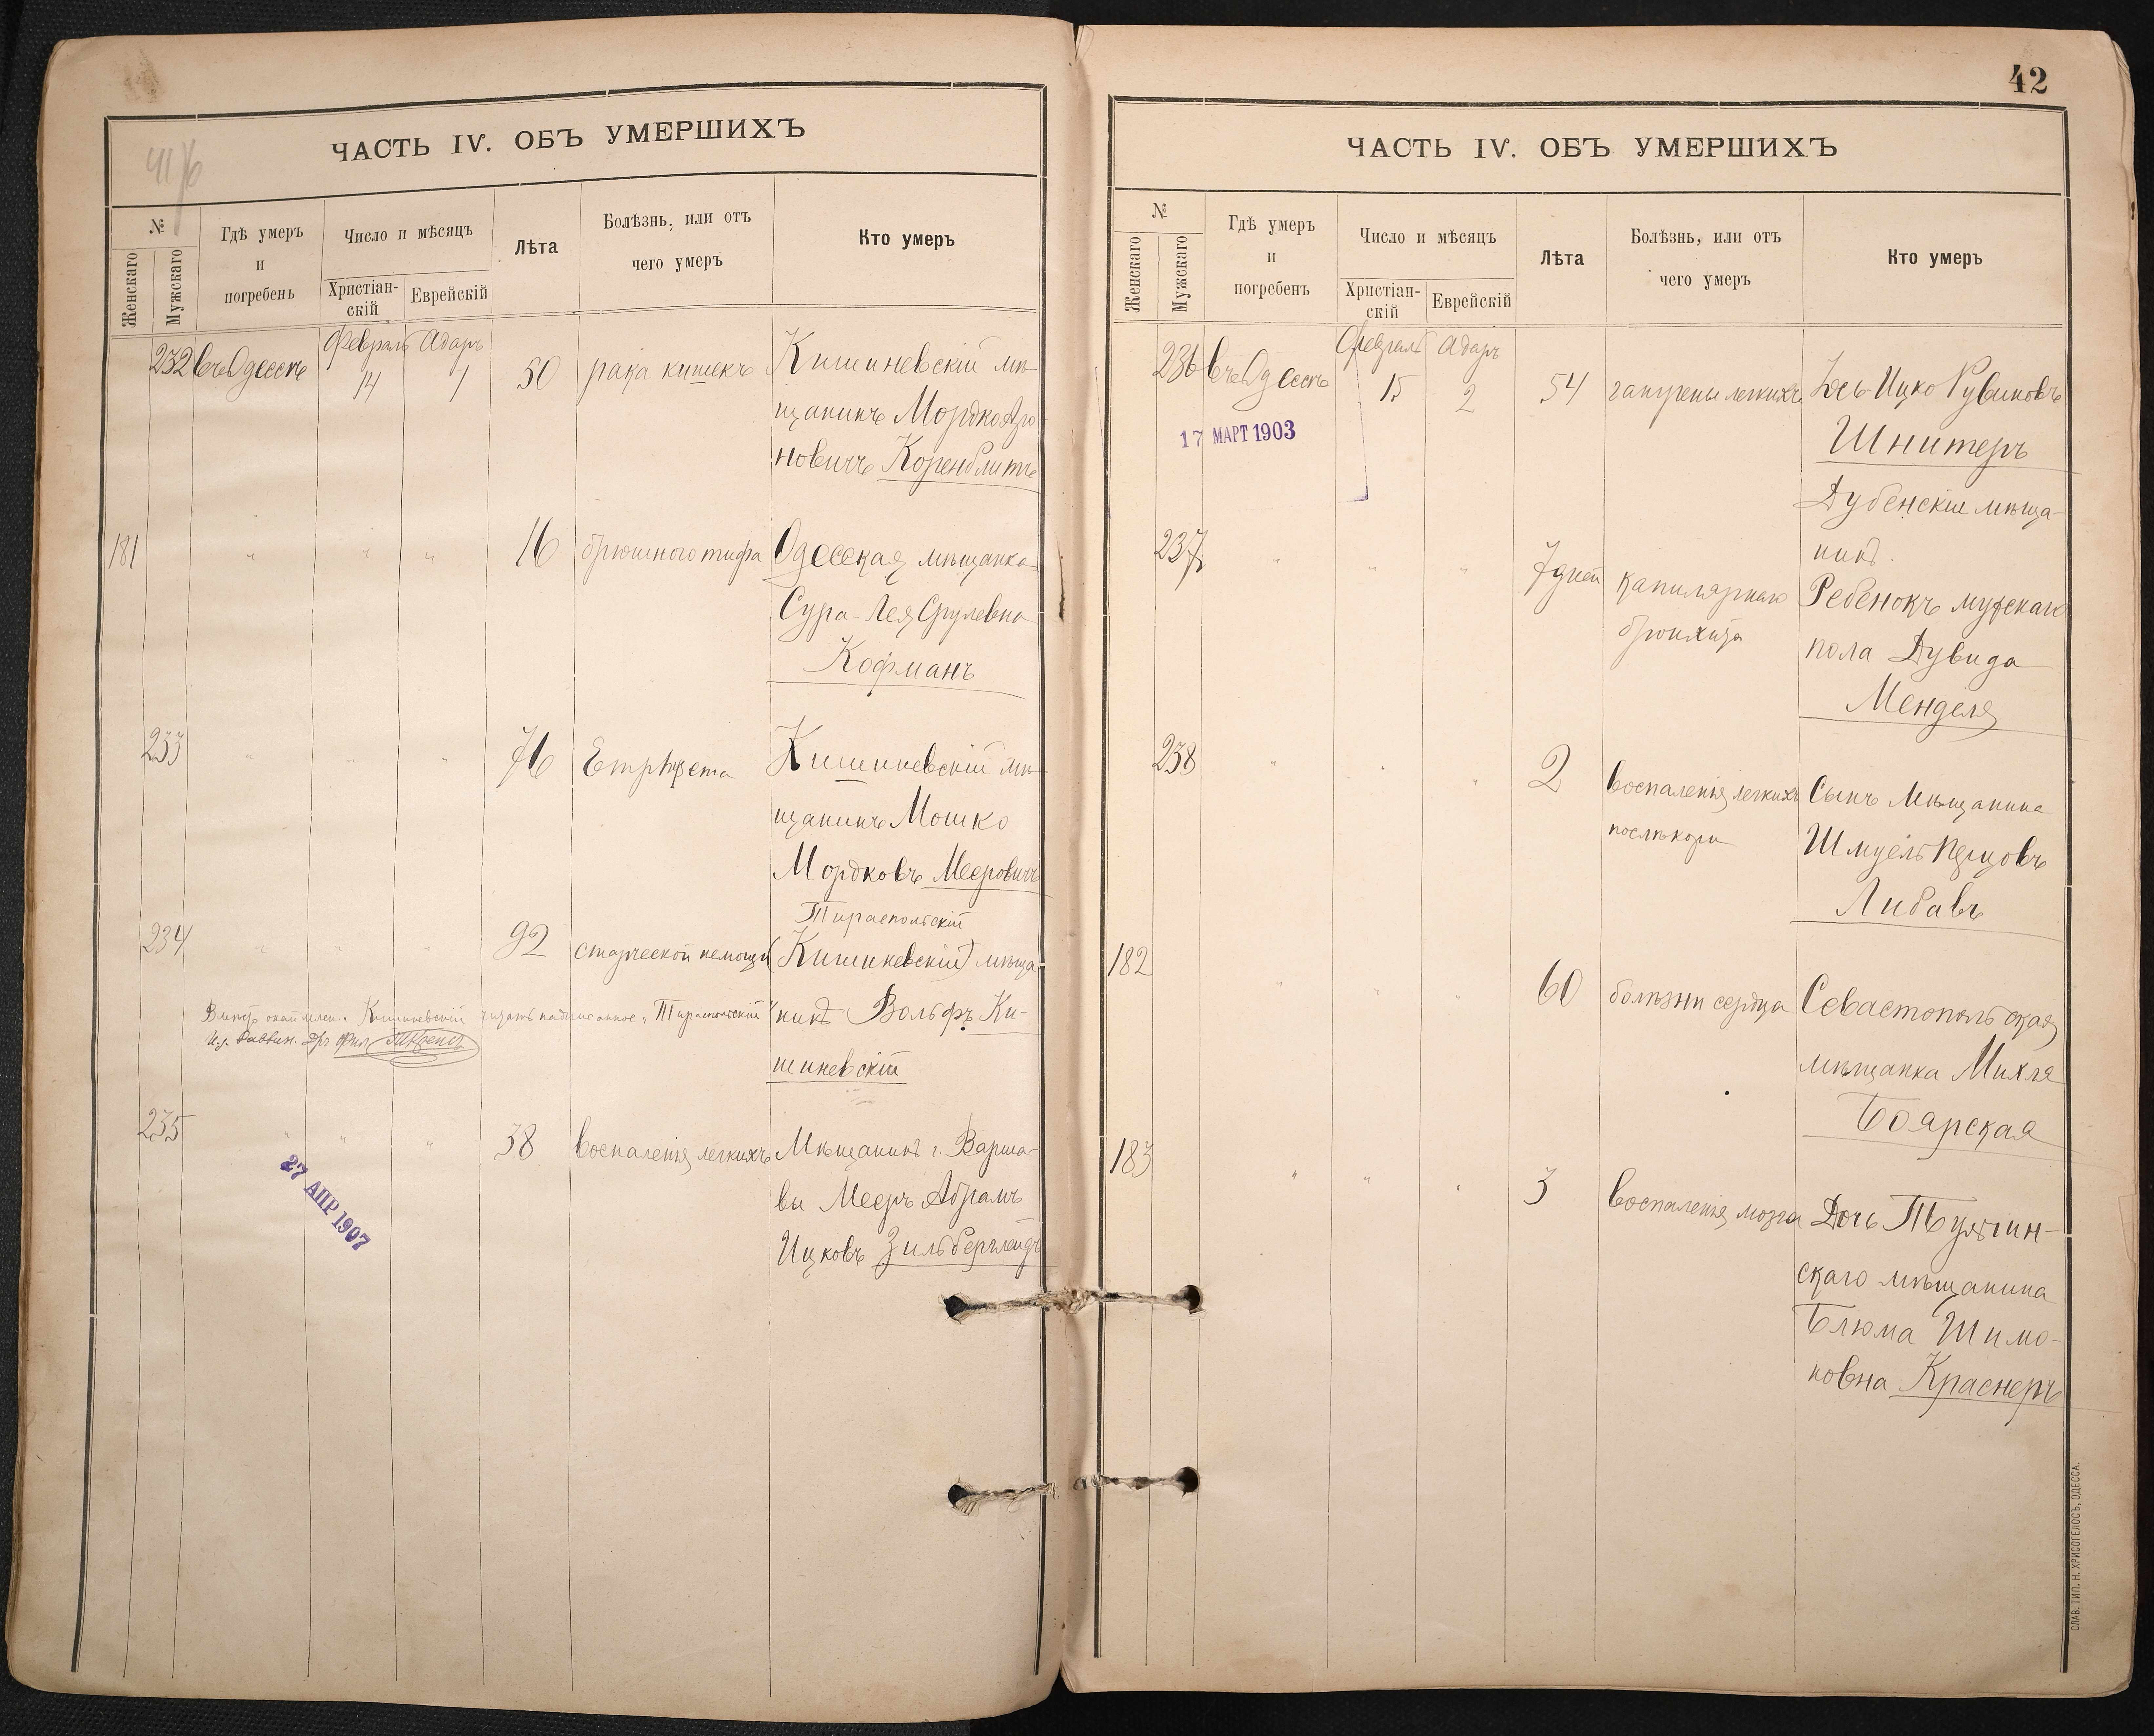 ЧАСТЬ IV. ОБЪ УМЕРШИХЪ
№
Женскаго
Мужскаго
Гдѣ умеръ
и
погребенъ
Число и мѣсяцъ
Христіан-
скій
Еврейскій
Лѣта
Болѣзнь, или отъ
чего умеръ
Кто умеръ
232 въ Одессѣ Февраль 14 Адаръ 1 50 рака кишекъ Кишиневскій мѣ-
щанинъ Мордко Аро
новичъ Коренблитъ
181 " " " 16 брюшного тифа Одесская мѣщанка
Сура-Лея Срулевна
Кофманъ
233 " " " 76 Кишиневскій мѣ-
щанинъ Мошко
Мордковъ Мееровичъ
Тираспольскій
234 " " " 92 старческой немощи (Кишиневскій) мѣща-
нинъ Вольфъ Ки-
шиневскій
Кишиневскій читать надписанное "Тираспольскій"
И.д. Раввин.
235 " " " 38 воспаленія легкихъ Мѣщанинъ г. Варша-
вы Мееръ Абрамъ
Ицковъ Зильберглейдъ
27 АПР 1907
42
ЧАСТЬ IV. ОБЪ УМЕРШИХЪ
№
Женскаго
Мужскаго
Гдѣ умеръ
и
погребенъ
Число и мѣсяцъ
Христіан-
скій
Еврейскій
Лѣта
Болѣзнь, или отъ
чего умеръ
Кто умеръ
236 въ Одессѣ Февраль 15 Адаръ 2 54 гангрены легкихъ Іось-Ицко Рувиновъ
Шнитеръ
17 МАРТ 1903
Дубенскій мѣща-
нинъ.
237 " " " 7 дней капилярнаго
бронхита
Ребенокъ мужскаго
пола Дувида
Менделя
238 " " " 2 воспаленія легкихъ
послѣ кори
Сынъ мѣщанина
Шмуель
Либавъ
182 " " " 60 болѣзни сердца Севастопольская
мѣщанка Михля
Боярская
183 " " " 3 воспаленія мозга Дочь Тульчин-
скаго мѣщанина
Блюма Шимо-
новна Краснеръ
СЛАВ. ТИП. Н. ХРИСОГЕЛОСЪ, ОДЕССА.